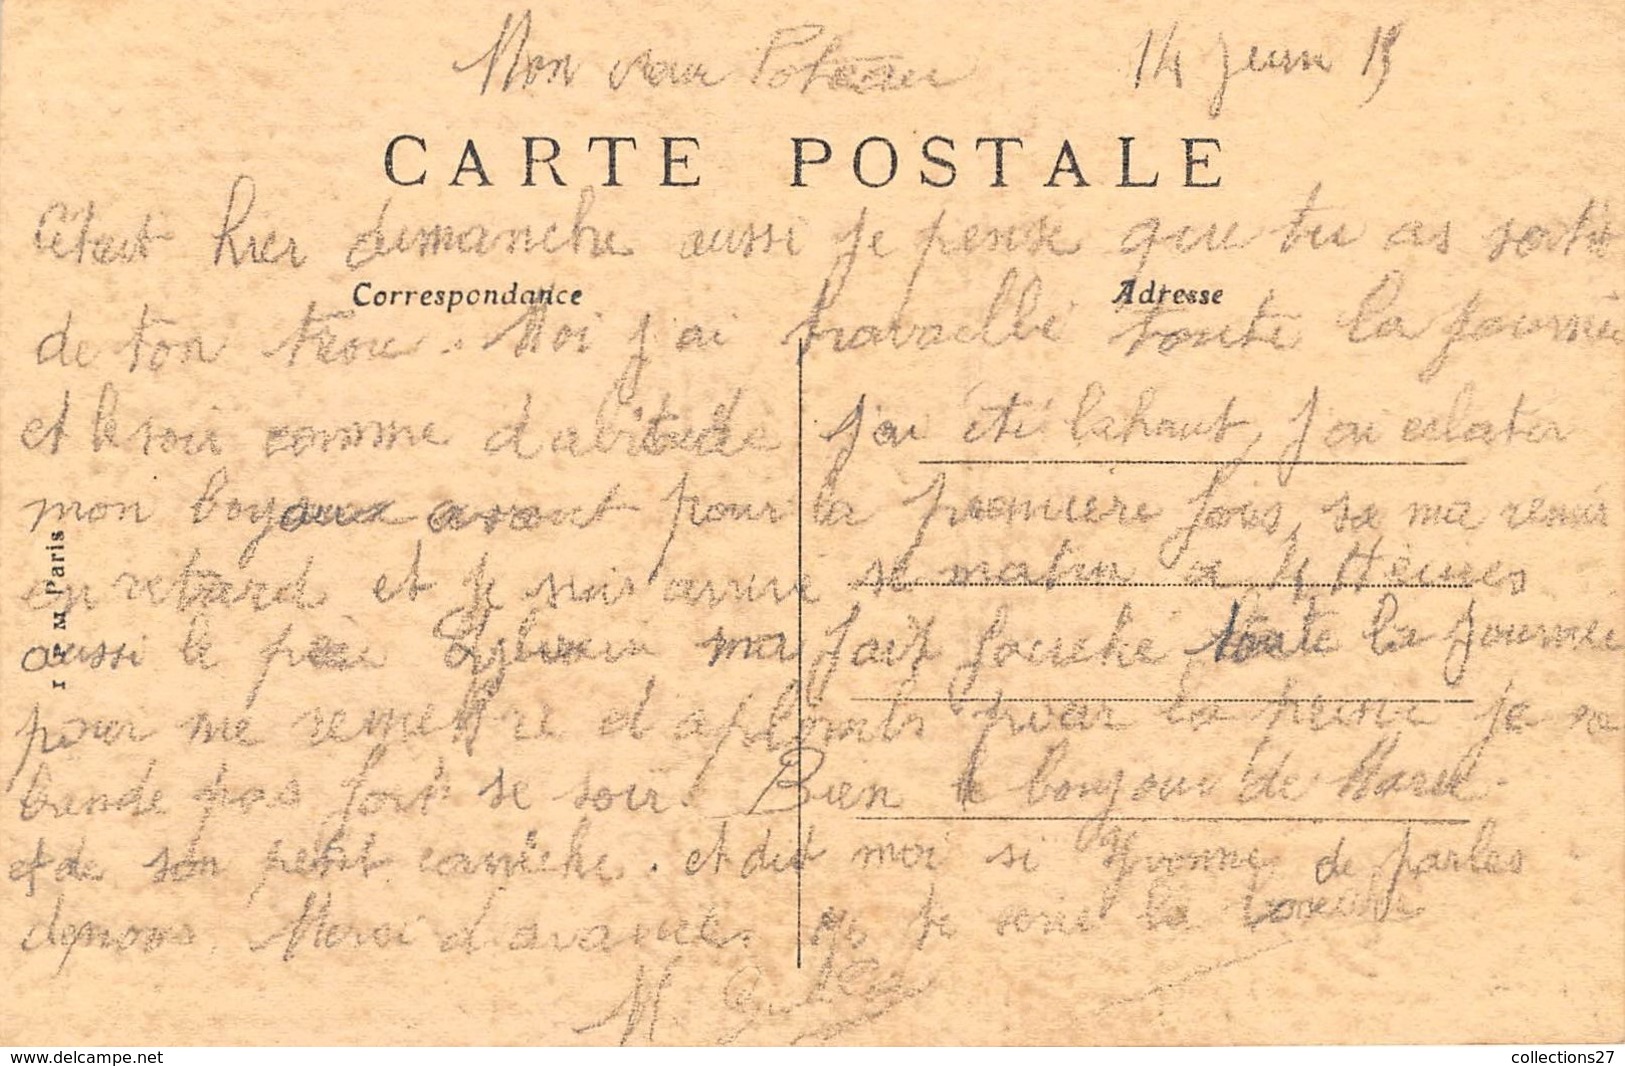 Mon vieux Poteau 14 Juin 15
CARTE POSTALE
C'était hier dimanche aussi je pense que tu as sortis
Correspondance Adresse
de ton trou. Moi j'ai travaillé toute la journée
et le soir comme d'abitude j'ai été lahaut, j'ai eclater
mon boyaux avant pour la première fois, sa ma remir
en retard et je suis arrivé se matin a 4 Heures
aussi le père ma fait souché toute la journée
pour me remettre d'aplombs pour la peine je va
bande pas fort se soir. Bien le bonjour de Marie
et de son petit caniche. et dit moi si Yvonne de parles
denous. Merci d'avance. je serre la
M.
I P M Paris
www.delcampe.net
collections27